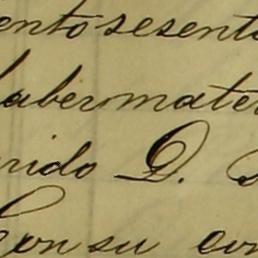 ento sesent
haber mater
rido D.
Con su con